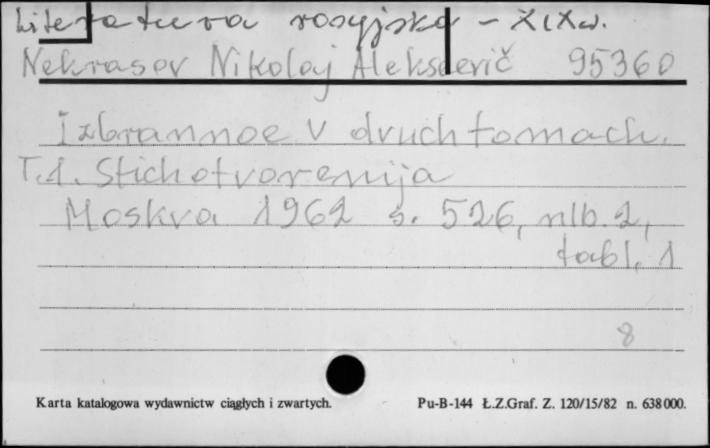 Literatura rosyjska - XIX w.
Nekrasov Nikolaj Alekseevič 95360
Izbrannoe v dvuch tomach.
T.1. Stichotvorenija
Moskva 1962 s. 526, nlb. 2,
tabl. 1
8
Karta katalogowa wydawnictw ciągłych i zwartych.
Pu-B-144 Ł.Z.Graf. Z. 120/15/82 n. 638000.